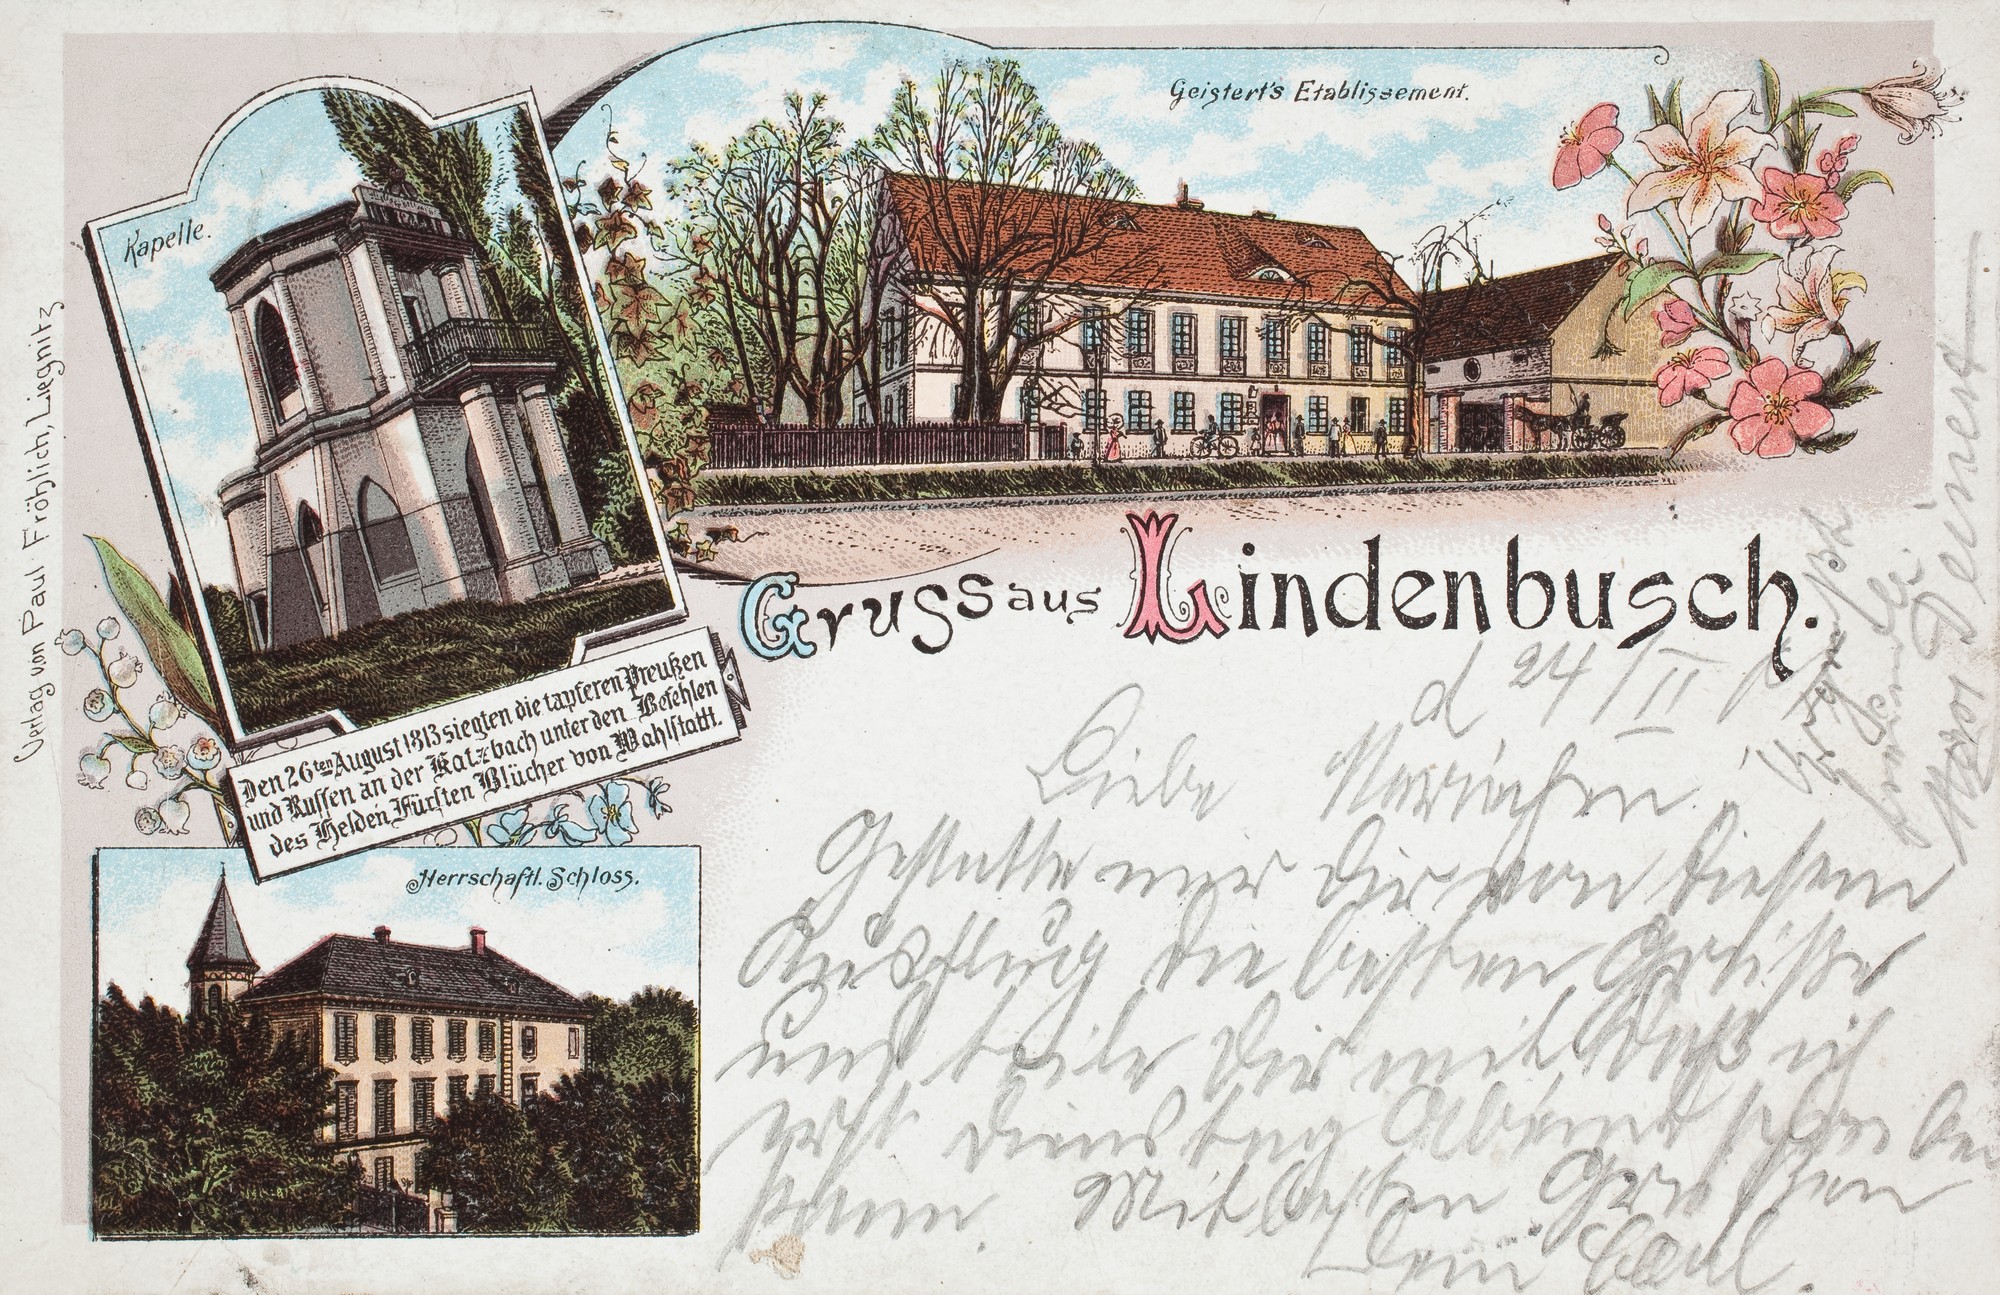 Geistert's Etablissement.
Kapelle.
Verlag von Paul Fröhlich, Liegnitz
Gruss aus Lindenbusch.
Den 26ten August 1813 siegten die tapferen Preußen
und Russen an der Katzbach unter den Befehlen
des Helden Fürsten Blücher von Wahlstatt.
Herrschaftl. Schloss.
d 24/II
Liebe
Gestatte mir Dir von diesem
Ausflug die besten Grüße
und teile Dir mit daß ich
erst Dienstag Abend
kann. Mit besten Grüßen
Dein